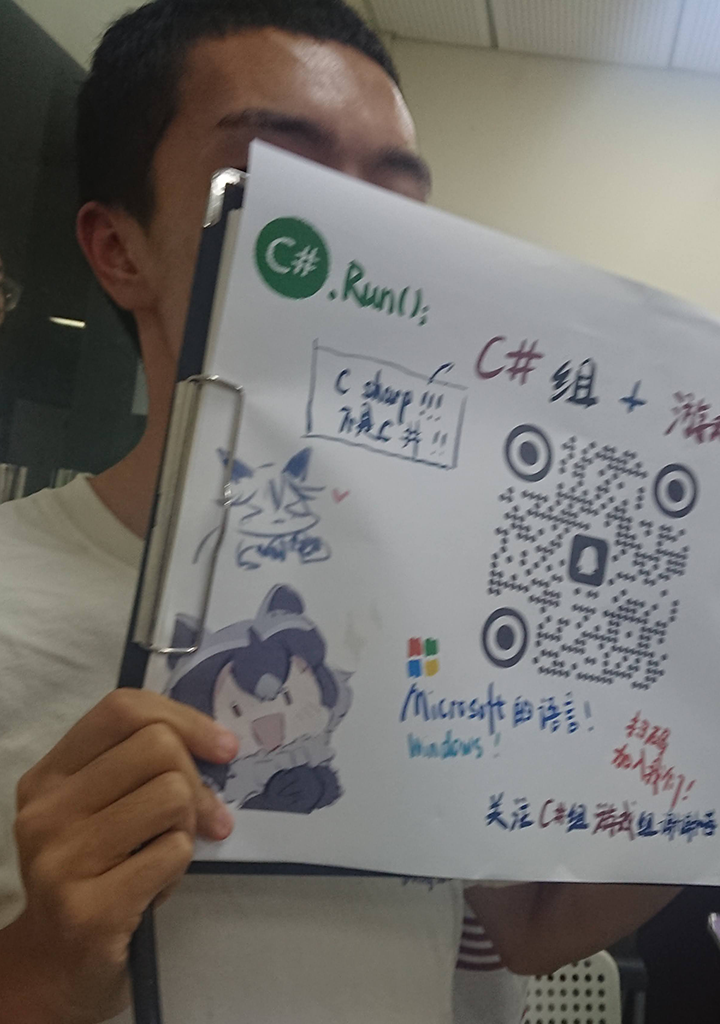 C#.Run();
C# 组 + 游
C sharp !!!
不是 C # !!
Microsoft 的语言!
Windows!
扫码
加入我们!
关注 C#组 游戏组 谢谢